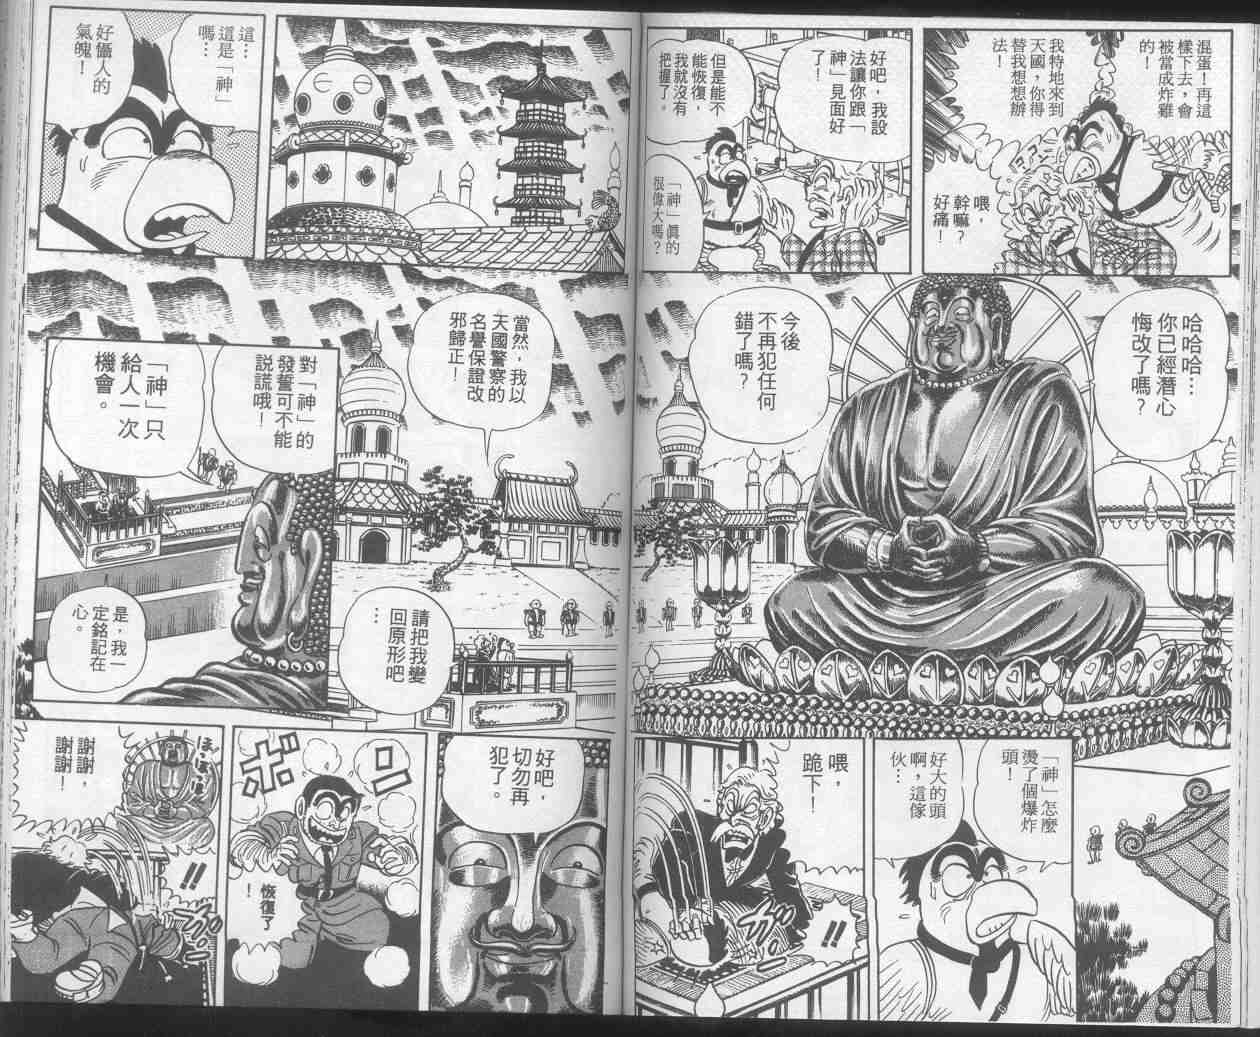 混蛋！再這
樣下去，會
被當成炸雞
的！
我特地來到
天國，你得
替我想想辦
法！
喂，
幹嘛？
好痛！
好吧，我設
法讓你跟「
神」見面好
了！
但是能不
能恢復，
我就沒有
把握了。
「神」真的
很偉大嗎？
哈哈哈…
你已經潛心
悔改了嗎？
今後
不再犯任何
錯了嗎？
「神」怎麼
燙了個爆炸
頭！
好大的頭
啊，這傢
伙…
喂，
跪下！
ガッ
!!
這…
這是「神」
嗎…
好懾人的
氣魄！
當然，我以
天國警察的
名譽保證改
邪歸正！
對「神」的
發誓可不能
説謊哦！
「神」只
給人一次
機會。
是，我一
定銘記在
心。
請把我變
回原形吧
…
好吧，
切勿再
犯了。
ボン
恢復了
！
ぼほぼほ
謝謝，
謝謝！
!!
ガッ